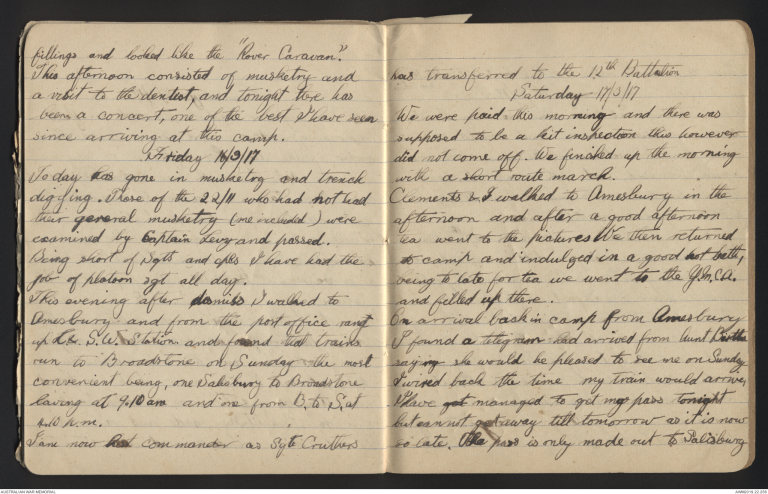 fillings and looked like the "Rover Caravan".
This afternoon consisted of musketry and
a visit to the dentist, and tonight there has
been a concert, one of the best I have seen
since arriving at this camp.
Friday 16/3/17
Today has gone in musketry and trench
digging. Those of the 22/11 who had not had
their general musketry (me included) were
examined by Captain Levy and passed.
Being short of Sgts and cpls I have had the
job of platoon sgt all day.
This evening after dismiss I walked to
Amesbury and from the post office rang
up L. & S.W. Station and found that trains
run to Broadstone on Sunday the most
convenient being, one Salisbury to Broadstone
leaving at 9.10 am and one from B. to S. at
4.10 p.m.
I am now hut commander as Sgt Cruthers
has transferred to the 12th Battalion
Saturday 17/3/17
We were paid this morning and there was
supposed to be a kit inspection this however
did not come off. We finished up the morning
with a short route march.
Clements & I walked to Amesbury in the
afternoon and after a good afternoon
tea went to the pictures We then returned
to camp and indulged in a good hot bath,
being to late for tea we went to the Y.M.C.A.
and filled up there.
On arrival back in camp from Amesbury
I found a telegram had arrived from Aunt Bertha
saying she would be pleased to see me on Sunday
I wired back the time my train would arrive,
I have got managed to get my pass tonight
but cannot get away till tomorrow as it is now
so late. The pass is only made out to Salisbury
AUSTRALIAN WAR MEMORIAL